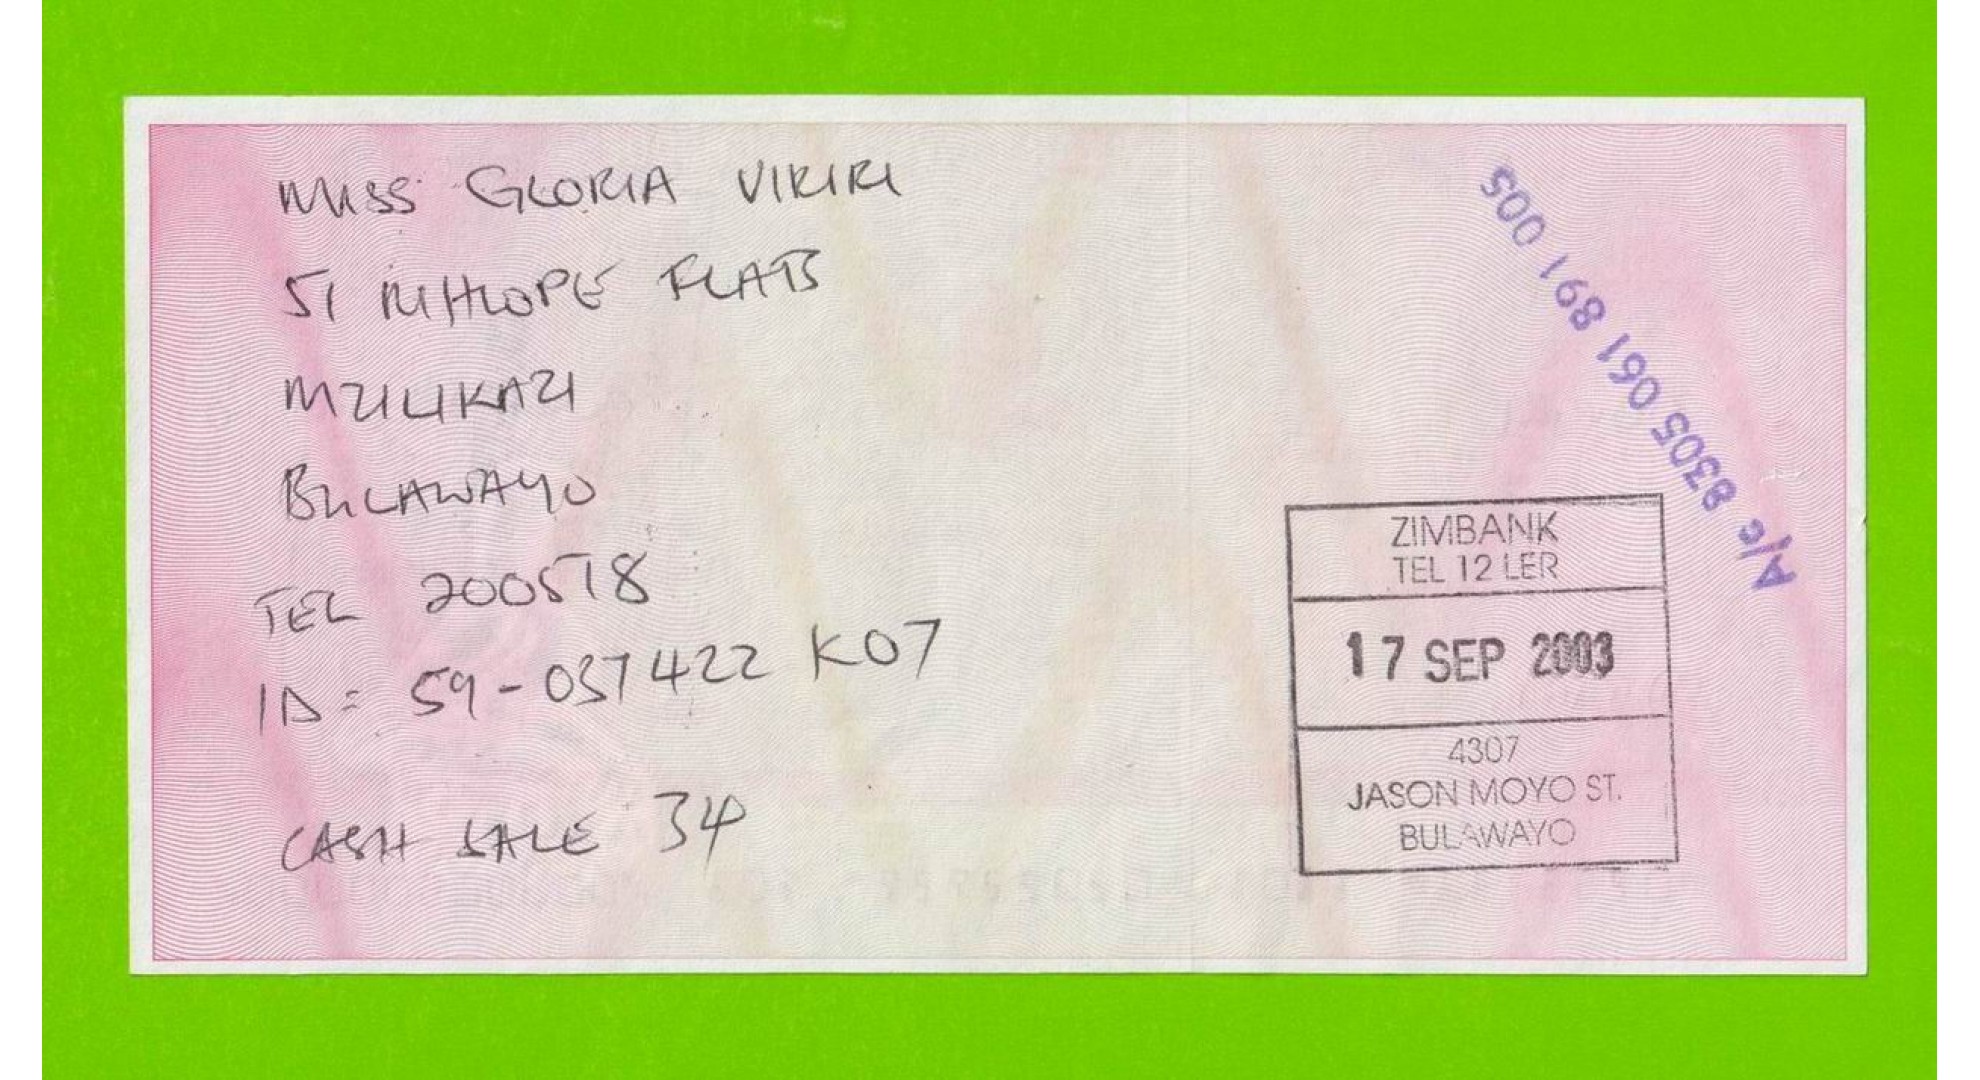 MISS GLORIA VIRIRI
51 MHLOPE FLATS
MZILIKAZI
BULAWAYO
TEL 200518
ID = 59-037422 K07
CASH SALE 34
A/c 8305 061 891 005
ZIMBANK
TEL 12 LER
17 SEP 2003
4307
JASON MOYO ST.
BULAWAYO